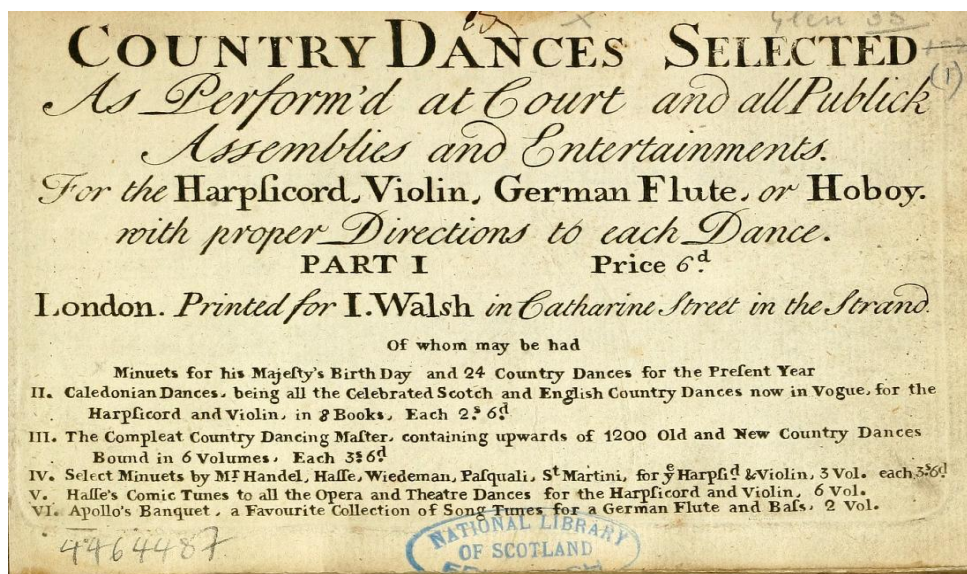 Glen 33
(1)
COUNTRY DANCES SELECTED
As Perform'd at Court and all Publick
Assemblies and Entertainments.
For the Harpſicord, Violin, German Flute, or Hoboy.
with proper Directions to each Dance.
PART I Price 6.d
London. Printed for I. Walsh in Catharine Street in the Strand.
Of whom may be had
Minuets for his Majeſty's Birth Day and 24 Country Dances for the Preſent Year
II. Caledonian Dances, being all the Celebrated Scotch and Engliſh Country Dances now in Vogue, for the
Harpſicord and Violin, in 8 Books, Each 2.s 6.d
III. The Compleat Country Dancing Maſter, containing upwards of 1200 Old and New Country Dances
Bound in 6 Volumes, Each 3s6.d
IV. Select Minuets by Mr. Handel, Haſſe, Wiedeman, Paſquali, St. Martini, for ye Harpſid. & Violin, 3 Vol. each 3s6d
V. Haſſe's Comic Tunes to all the Opera and Theatre Dances for the Harpſicord and Violin, 6 Vol.
VI. Apollo's Banquet, a Favourite Collection of Song Tunes for a German Flute and Baſs, 2 Vol.
4464487
NATIONAL LIBRARY
OF SCOTLAND